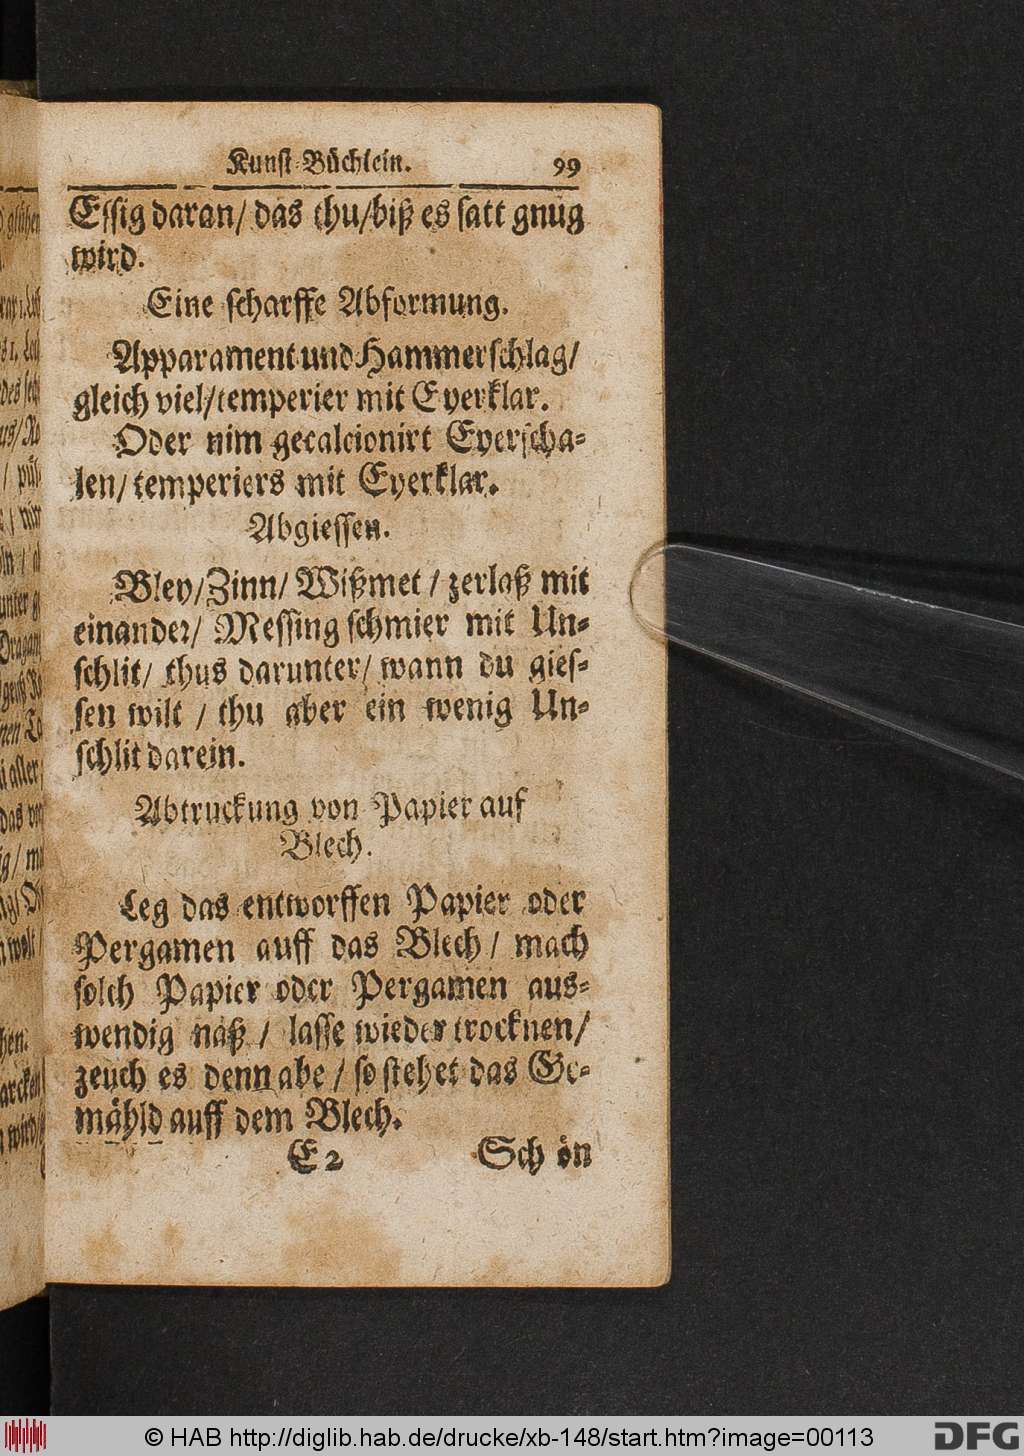 Kunst-Büchlein. 99
Essig daran/ das thu/biß es satt gnug
wird.
Eine scharffe Abformung.
Apparament und Hammerschlag/
gleich viel/temperier mit Eyerklar.
Oder nim gecalcionirt Eyerscha-
len/ temperiers mit Eyerklar.
Abgiessen.
Bley/Zinn/ Wißmet / zerlaß mit
einander/ Messing schmier mit Un-
schlit/ thus darunter/ wann du gies-
sen wilt / thu aber ein wenig Un-
schlit darein.
Abtruckung von Papier auf
Blech.
Leg das entworffen Papier oder
Pergamen auff das Blech / mach
solch Papier oder Pergamen aus-
wendig naß / lasse wieder trocknen/
zeuch es denn abe / so stehet das Ge-
mähld auff dem Blech.
E2 Schön
© HAB http://diglib.hab.de/drucke/xb-148/start.htm?image=00113
DFG